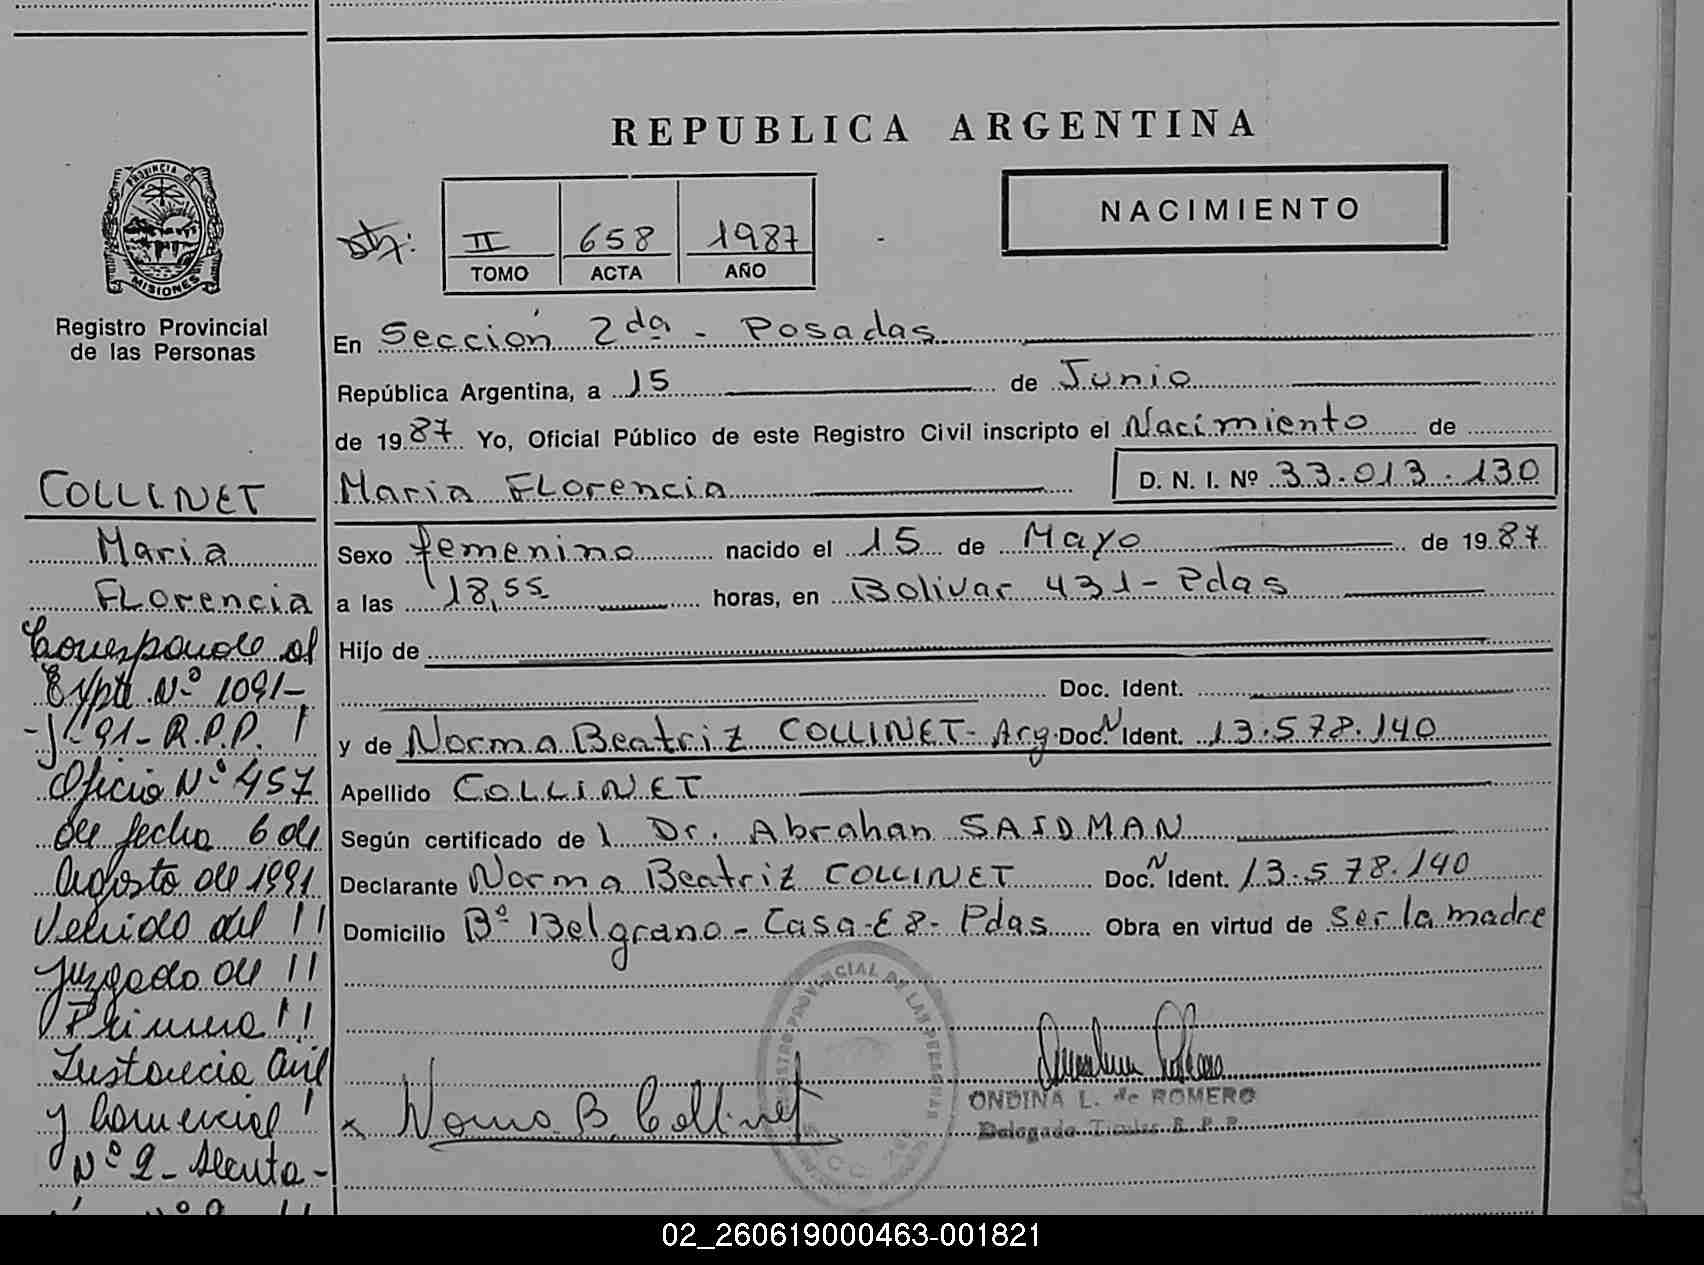 REPUBLICA ARGENTINA
NACIMIENTO
II 658 1987
TOMO ACTA AÑO
PROVINCIA DE
MISIONES
Registro Provincial
de las Personas
En Sección 2da - Posadas
República Argentina, a 15 de Junio
de 1987 Yo, Oficial Público de este Registro Civil inscripto el Nacimiento de
Maria FLorencia D. N. I. Nº 33.013.130
Sexo femenino nacido el 15 de Mayo de 1987
a las 18,55 horas, en Bolivar 431 - Pdas
Hijo de
Doc. Ident.
y de Norma Beatriz COLLINET - Arg. Doc. N Ident. 13.578.140
Apellido COLLINET
Según certificado de l Dr. Abrahan SAIDMAN
Declarante Norma Beatriz COLLINET Doc. N Ident. 13.578.140
Domicilio Bº Belgrano - Casa - E 8 - Pdas Obra en virtud de ser la madre
COLLINET
Maria
FLorencia
Corresponde al
Expte Nº 1091-
-J-91- R.P.P.
Oficio Nº 457
de fecha 6 de
Agosto de 1991
Venido del
Juzgado de
Primera
Instancia Civil
y Comercial
Nº 2 -
REGISTRO PROVINCIAL DE LAS PERSONAS
x Norma B. Collinet
ONDINA L. de ROMERO
Delegada Titular R. P. P.
02_260619000463-001821